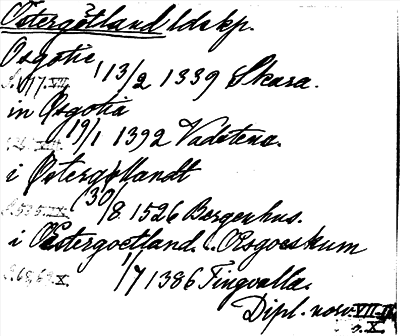 Östergötland ldskp.
Osgotie
13/2 1339 Skara.
in Osgotia
19/1 1392 Vadstena.
i Østergøtlandt
(30/8 1526 Bergenhus.
i Østergoetland. Osgoeskum
1/7 1386 Tingvalla.
Dipl. norv. VII
X.